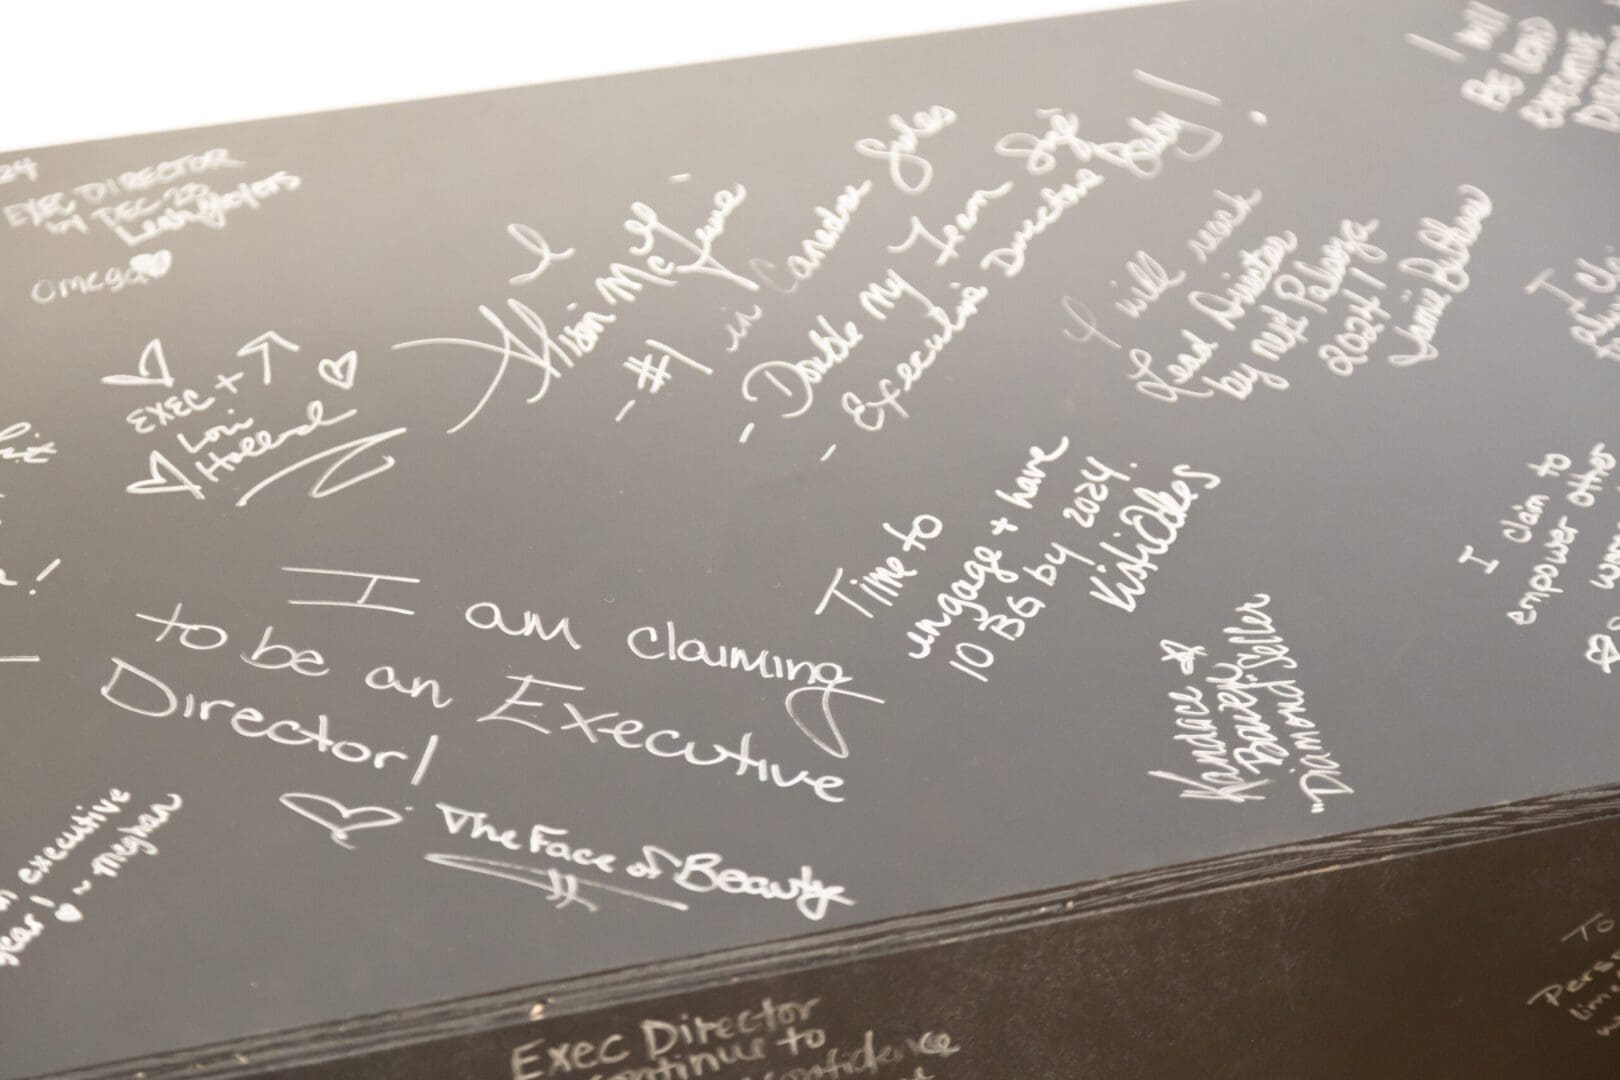 24
EXEC DIRECTOR
by DEC 23
Leah
omega
EXEC +
Lori
Holland
I
Alison McGuire
- #1 in Canadian Sales
- Double My Team Size
- Executive Directors Baby!
I will reach
Lead Director
by next Palooza
2024!
Jamie
I will
Be
EXECUTIVE
I
Time to
engage + have
10 BG by 2024.
I claim to
empower other
Kandace
Bawek
"Diamond Seller
I am claiming
to be an Executive
Director!
The Face of Beauty
executive
year! ~ meghan
Exec Director
continue to
confidence
To